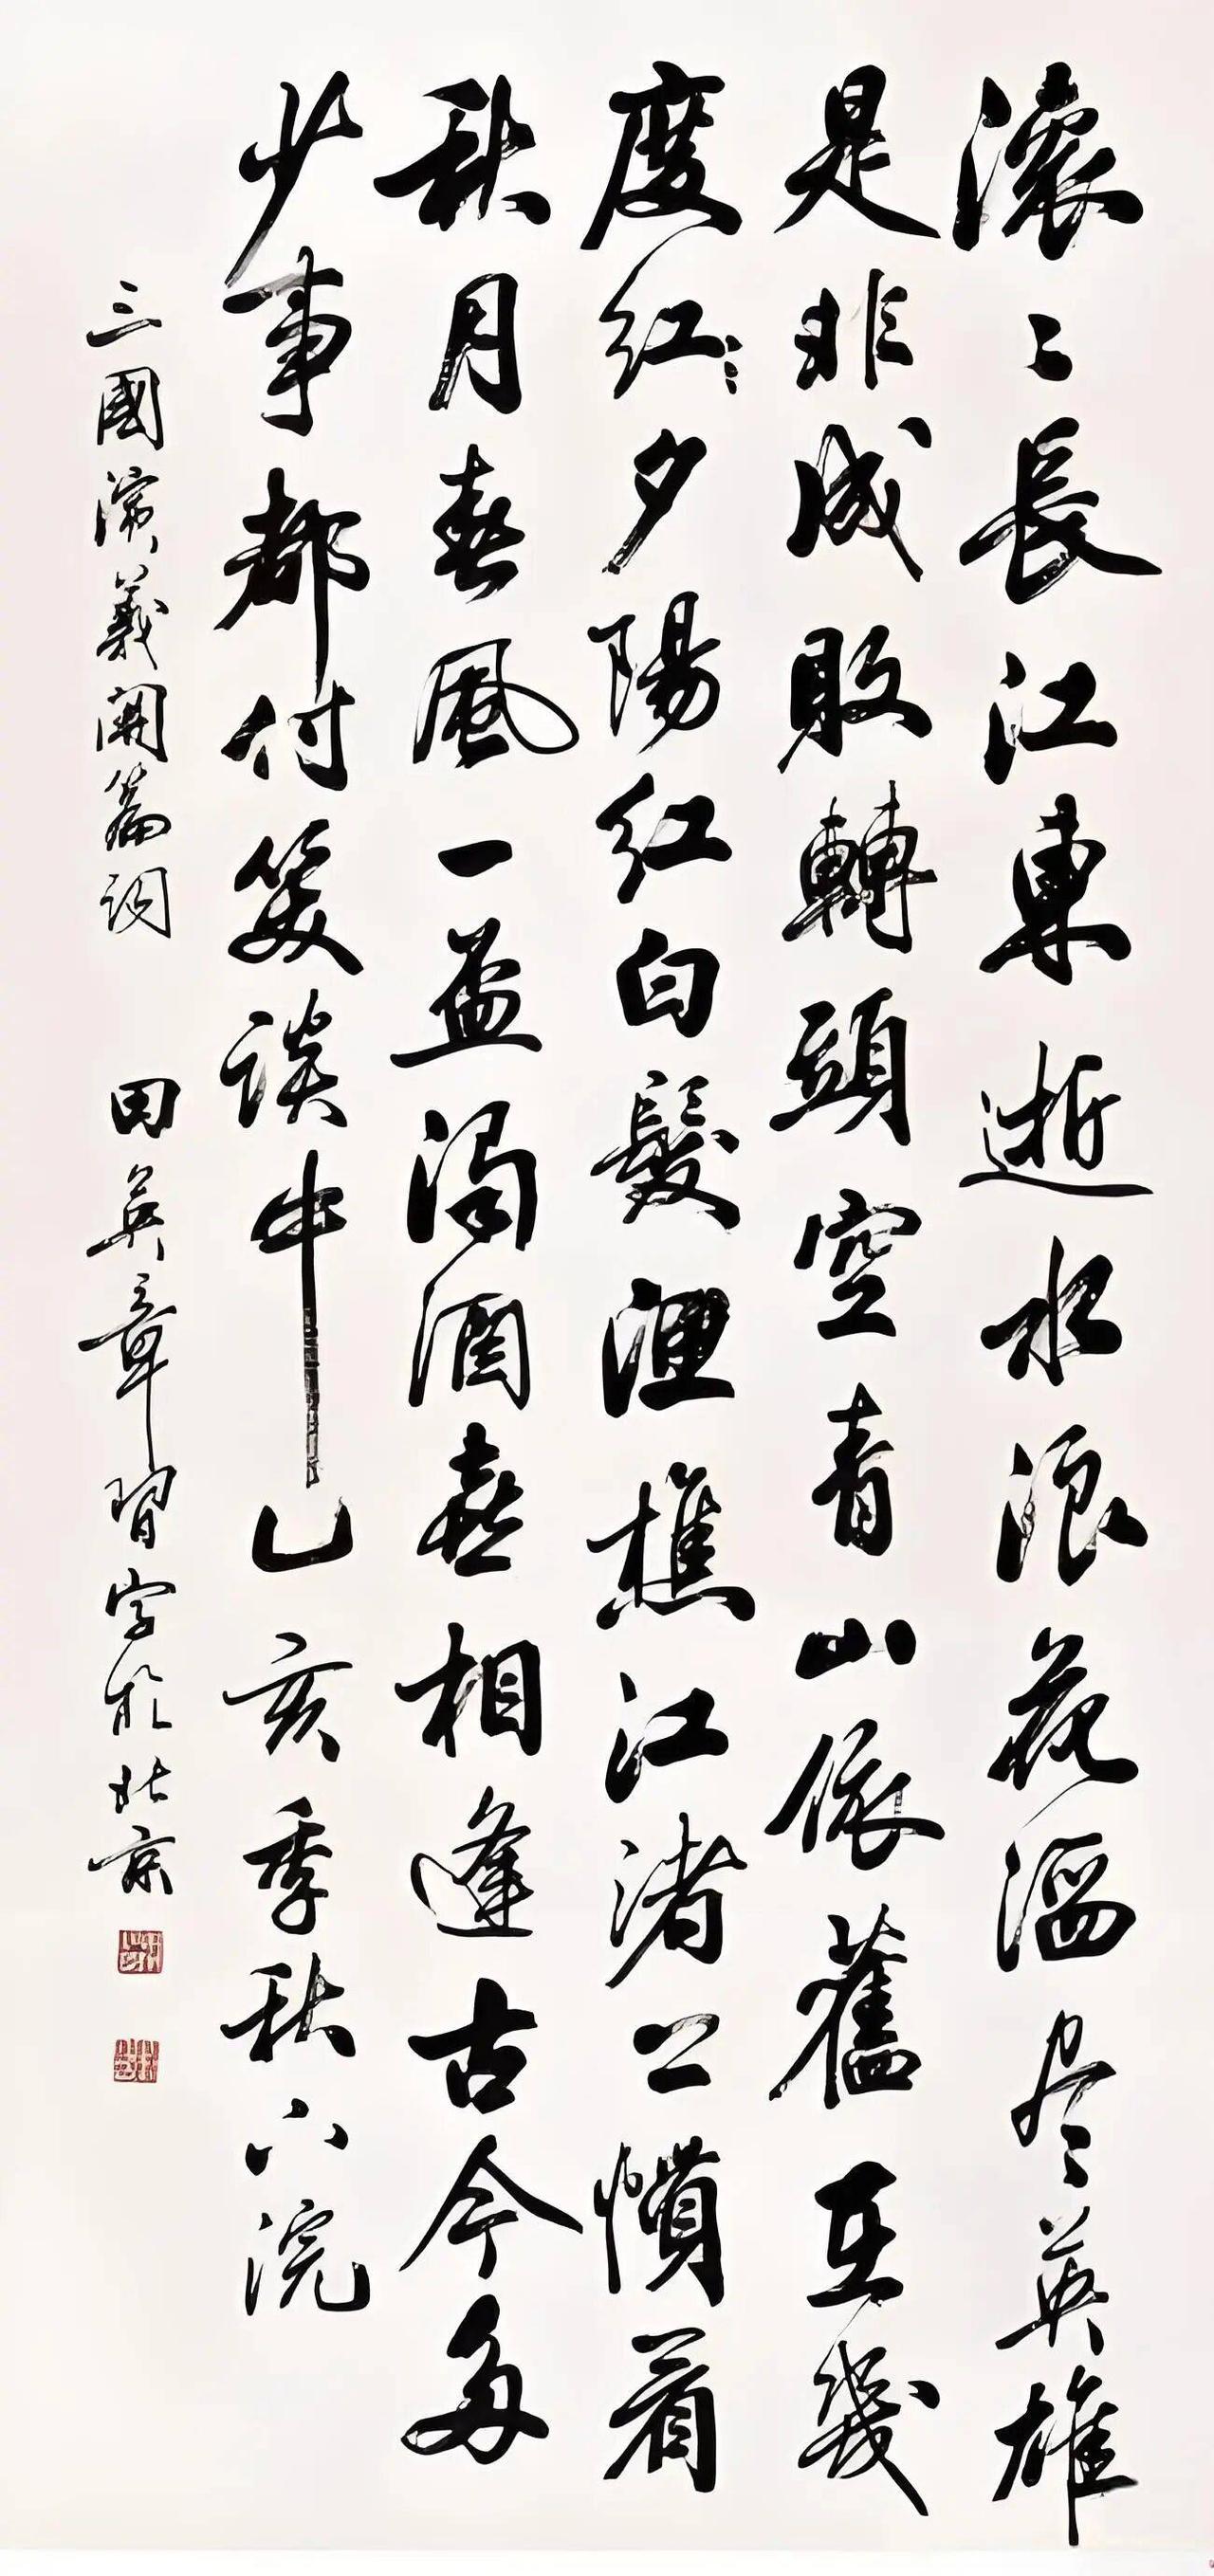 滚〻長江東逝水浪花滔尽英雄
是非成敗轉頭空青山依舊在幾
度紅夕陽紅白髮漁樵江渚上慣看
秋月春風一盃濁酒喜相逢古今多
少事都付笑談中己亥季秋下浣
三國演義開篇詞 田英章習字於北京